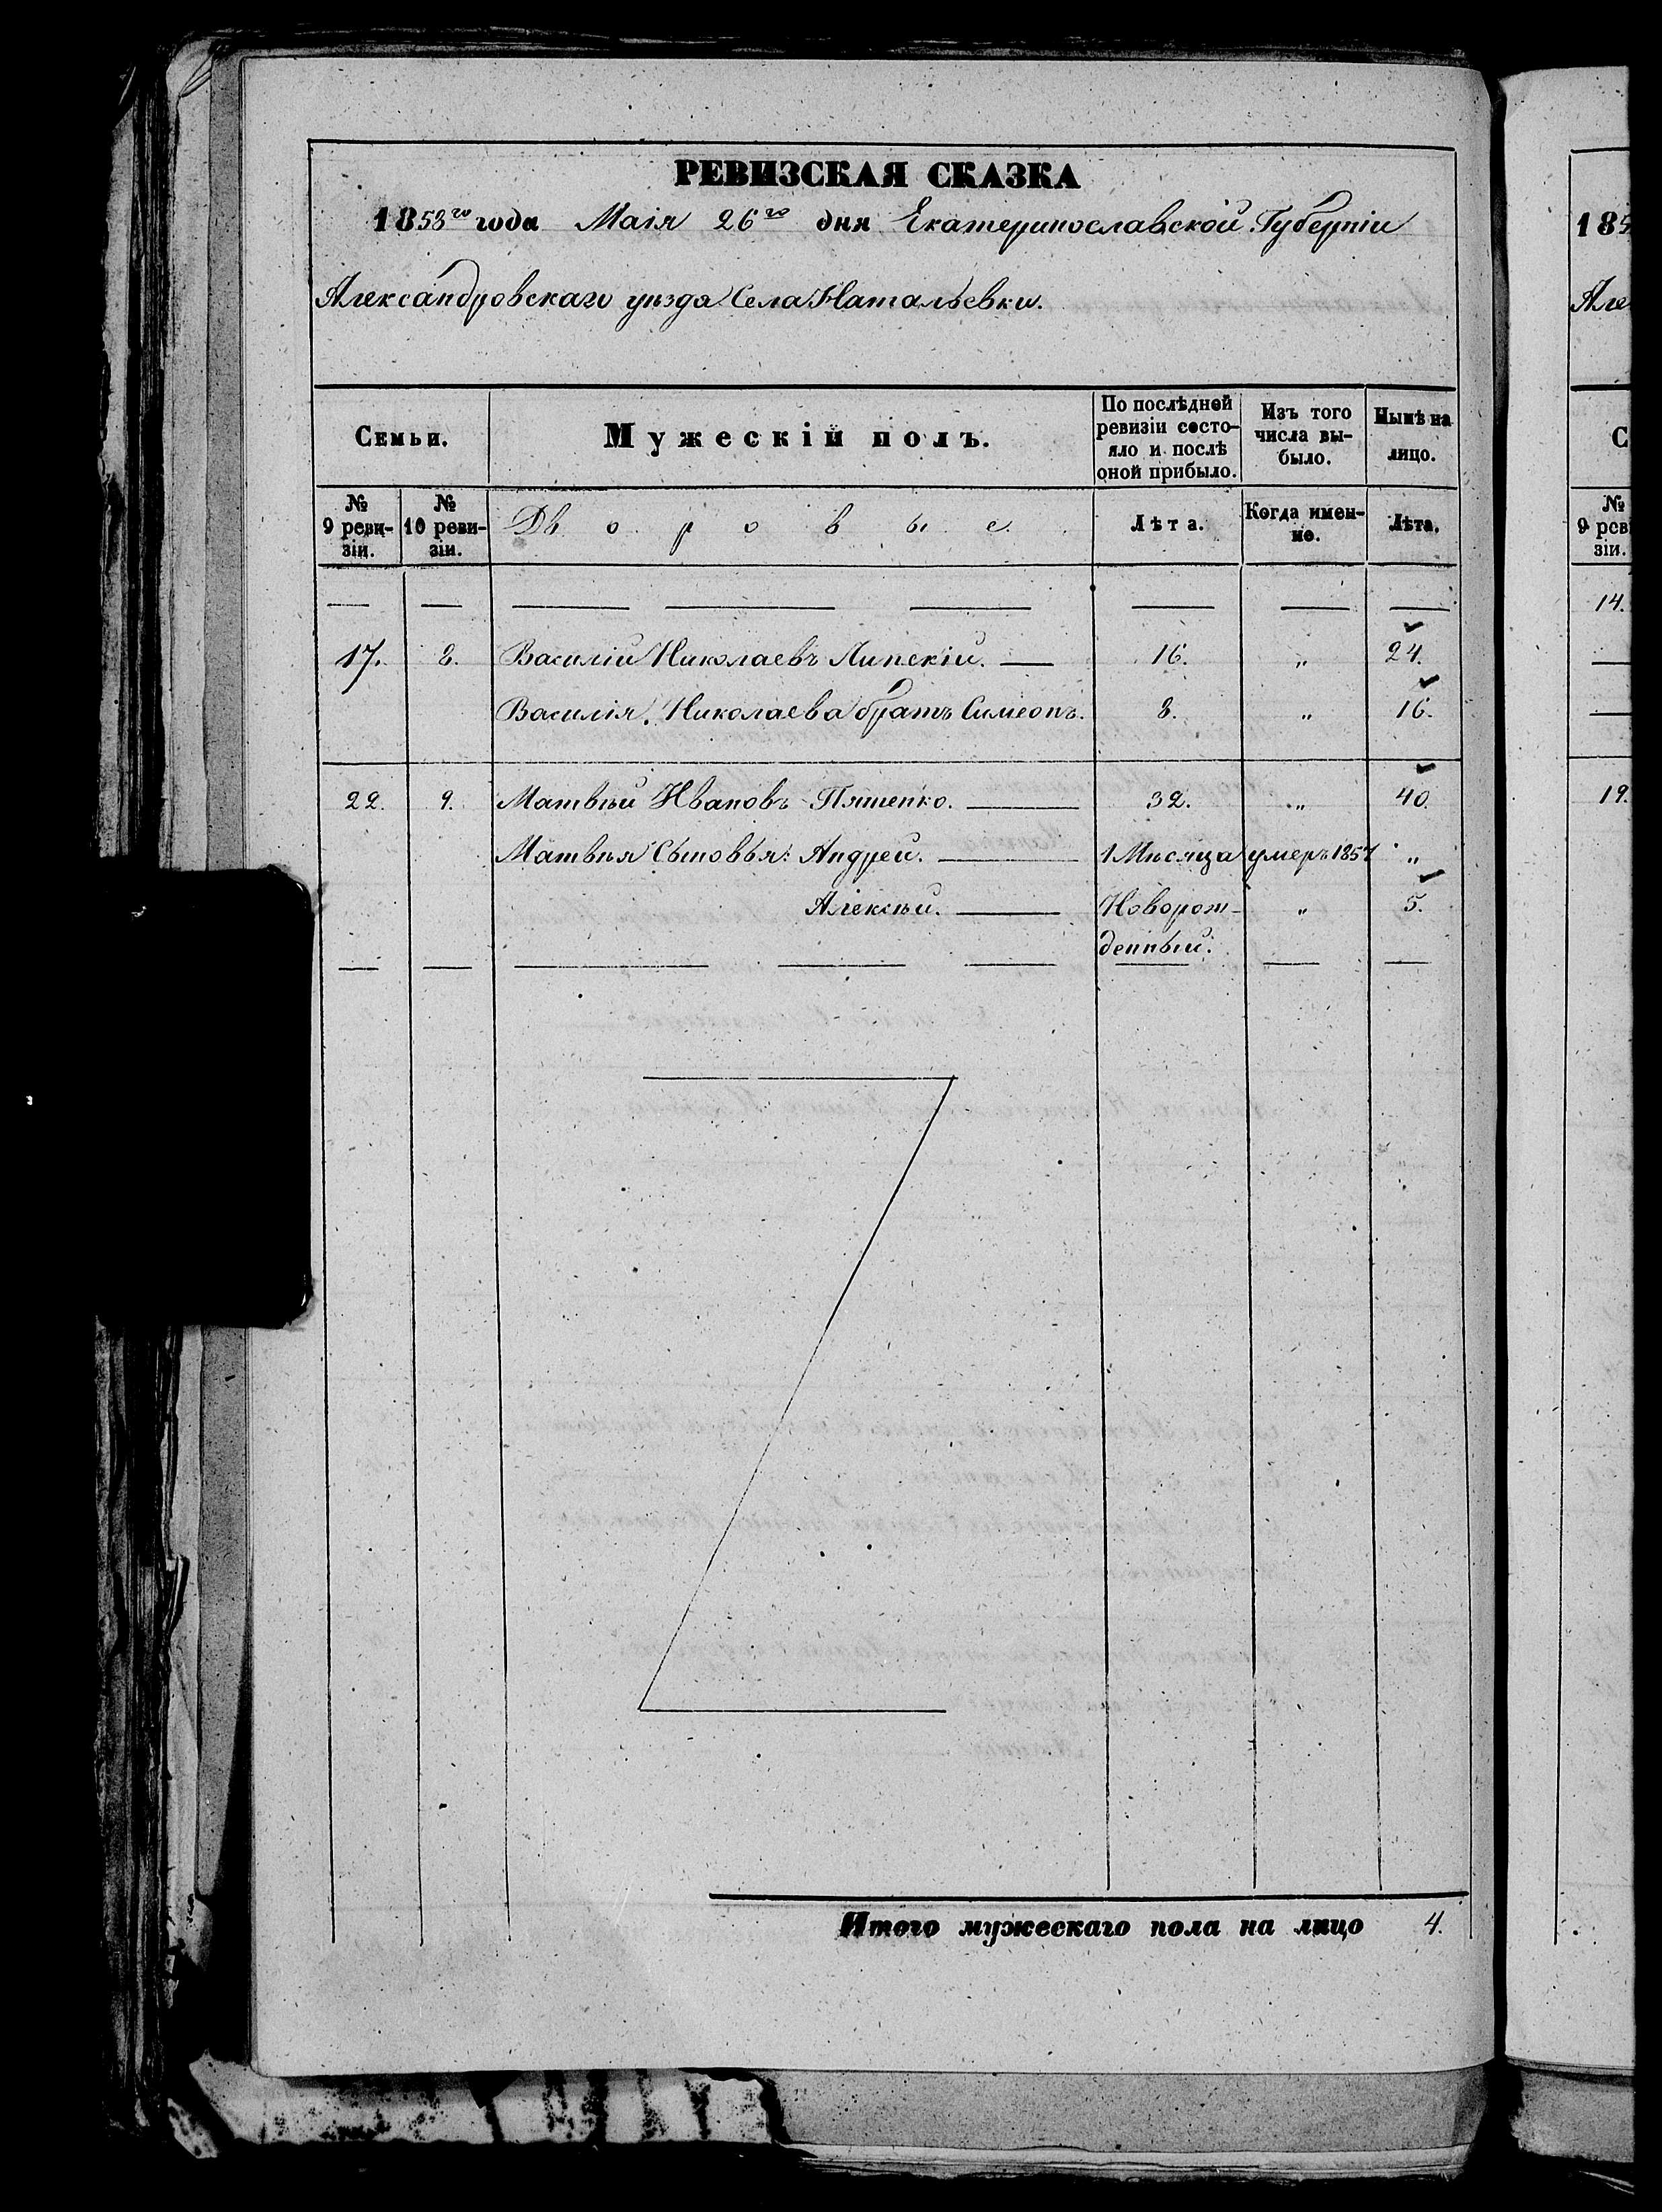 РЕВИЗСКАЯ СКАЗКА
1858го года Маія 26го дня Екатеринославской Губерніи
Александровскаго уѣзда Села Натальевки.
Семьи.
Мужескій полъ.
По послѣдней ревизіи состо-
яло и послѣ оной прибыло.
Изъ того числа вы-
было.
Нынѣ на лицо.
№ 9 реви-
зіи.
№ 10 реви-
зіи.
Дворовые.
Лѣта.
Когда имен-
но.
Лѣта.
17. 8. Василій Николаевъ Липскій. 16. „ 24.
Василія Николаева братъ Симеонъ. 8. „ 16.
22. 9. Матвѣй Ивановъ Пятенко. 32. „ 40.
Матвѣя Сыновья: Андрей. 1 Мѣсяца умеръ 1857 „
Алексѣй. Новорож- „ 5.
денный.
Итого мужескаго пола на лицо 4.
185
Але
С
№
9 рев
зіи.
14.
19.